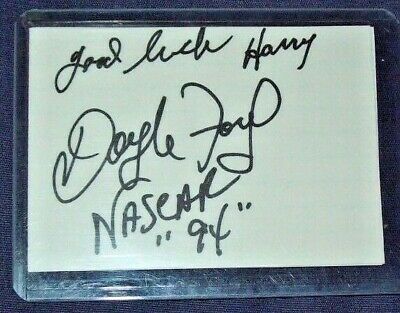 good luck Harry
Doyle Ford
NASCAR
"94"